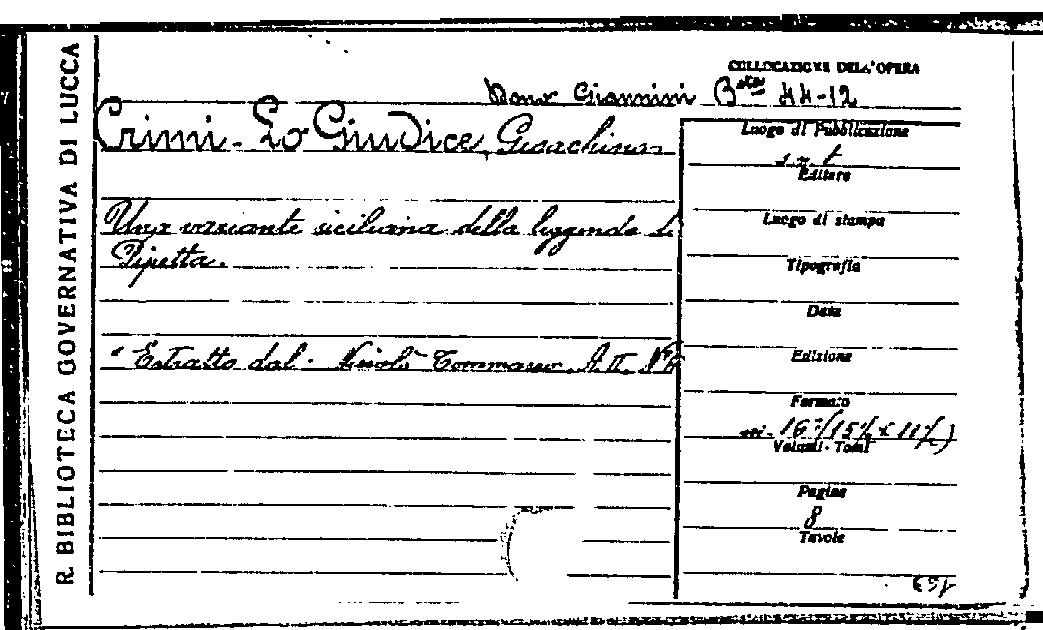 R. BIBLIOTECA GOVERNATIVA DI LUCCA
COLLOCAZIONE DELL'OPERA
Dono Giannini Bsta 44-12
Crimi-Lo Giudice, Gioachino
Una variante siciliana della leggenda di
Pipetta.
"Estratto dal: Nicolò Tommaseo. A. II. N.
Luogo di Pubblicazione
s. n. t
Editore
Luogo di stampa
Tipografia
Data
Edizione
Formato
in-16°
Volumi - Tomi
Pagine
8
Tavole